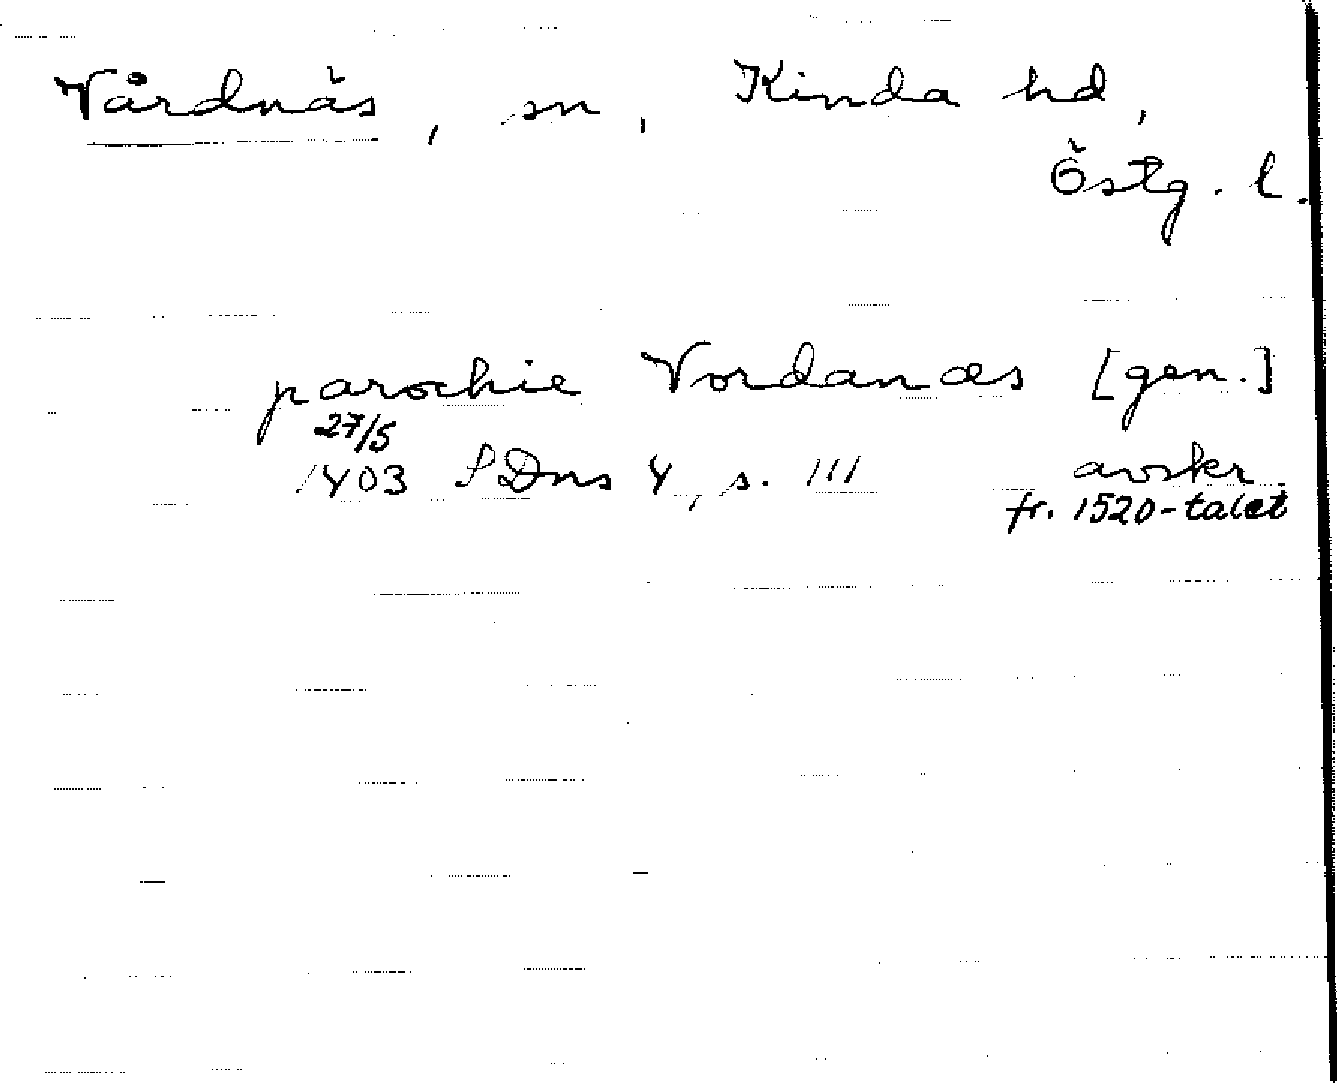 Vårdnäs, sn, Kinda hd,
Östg. l.
parochie Vordanæs [gen.]
27/5
1403 SDns 4, s. 111 avskr.
fr. 1520-talet